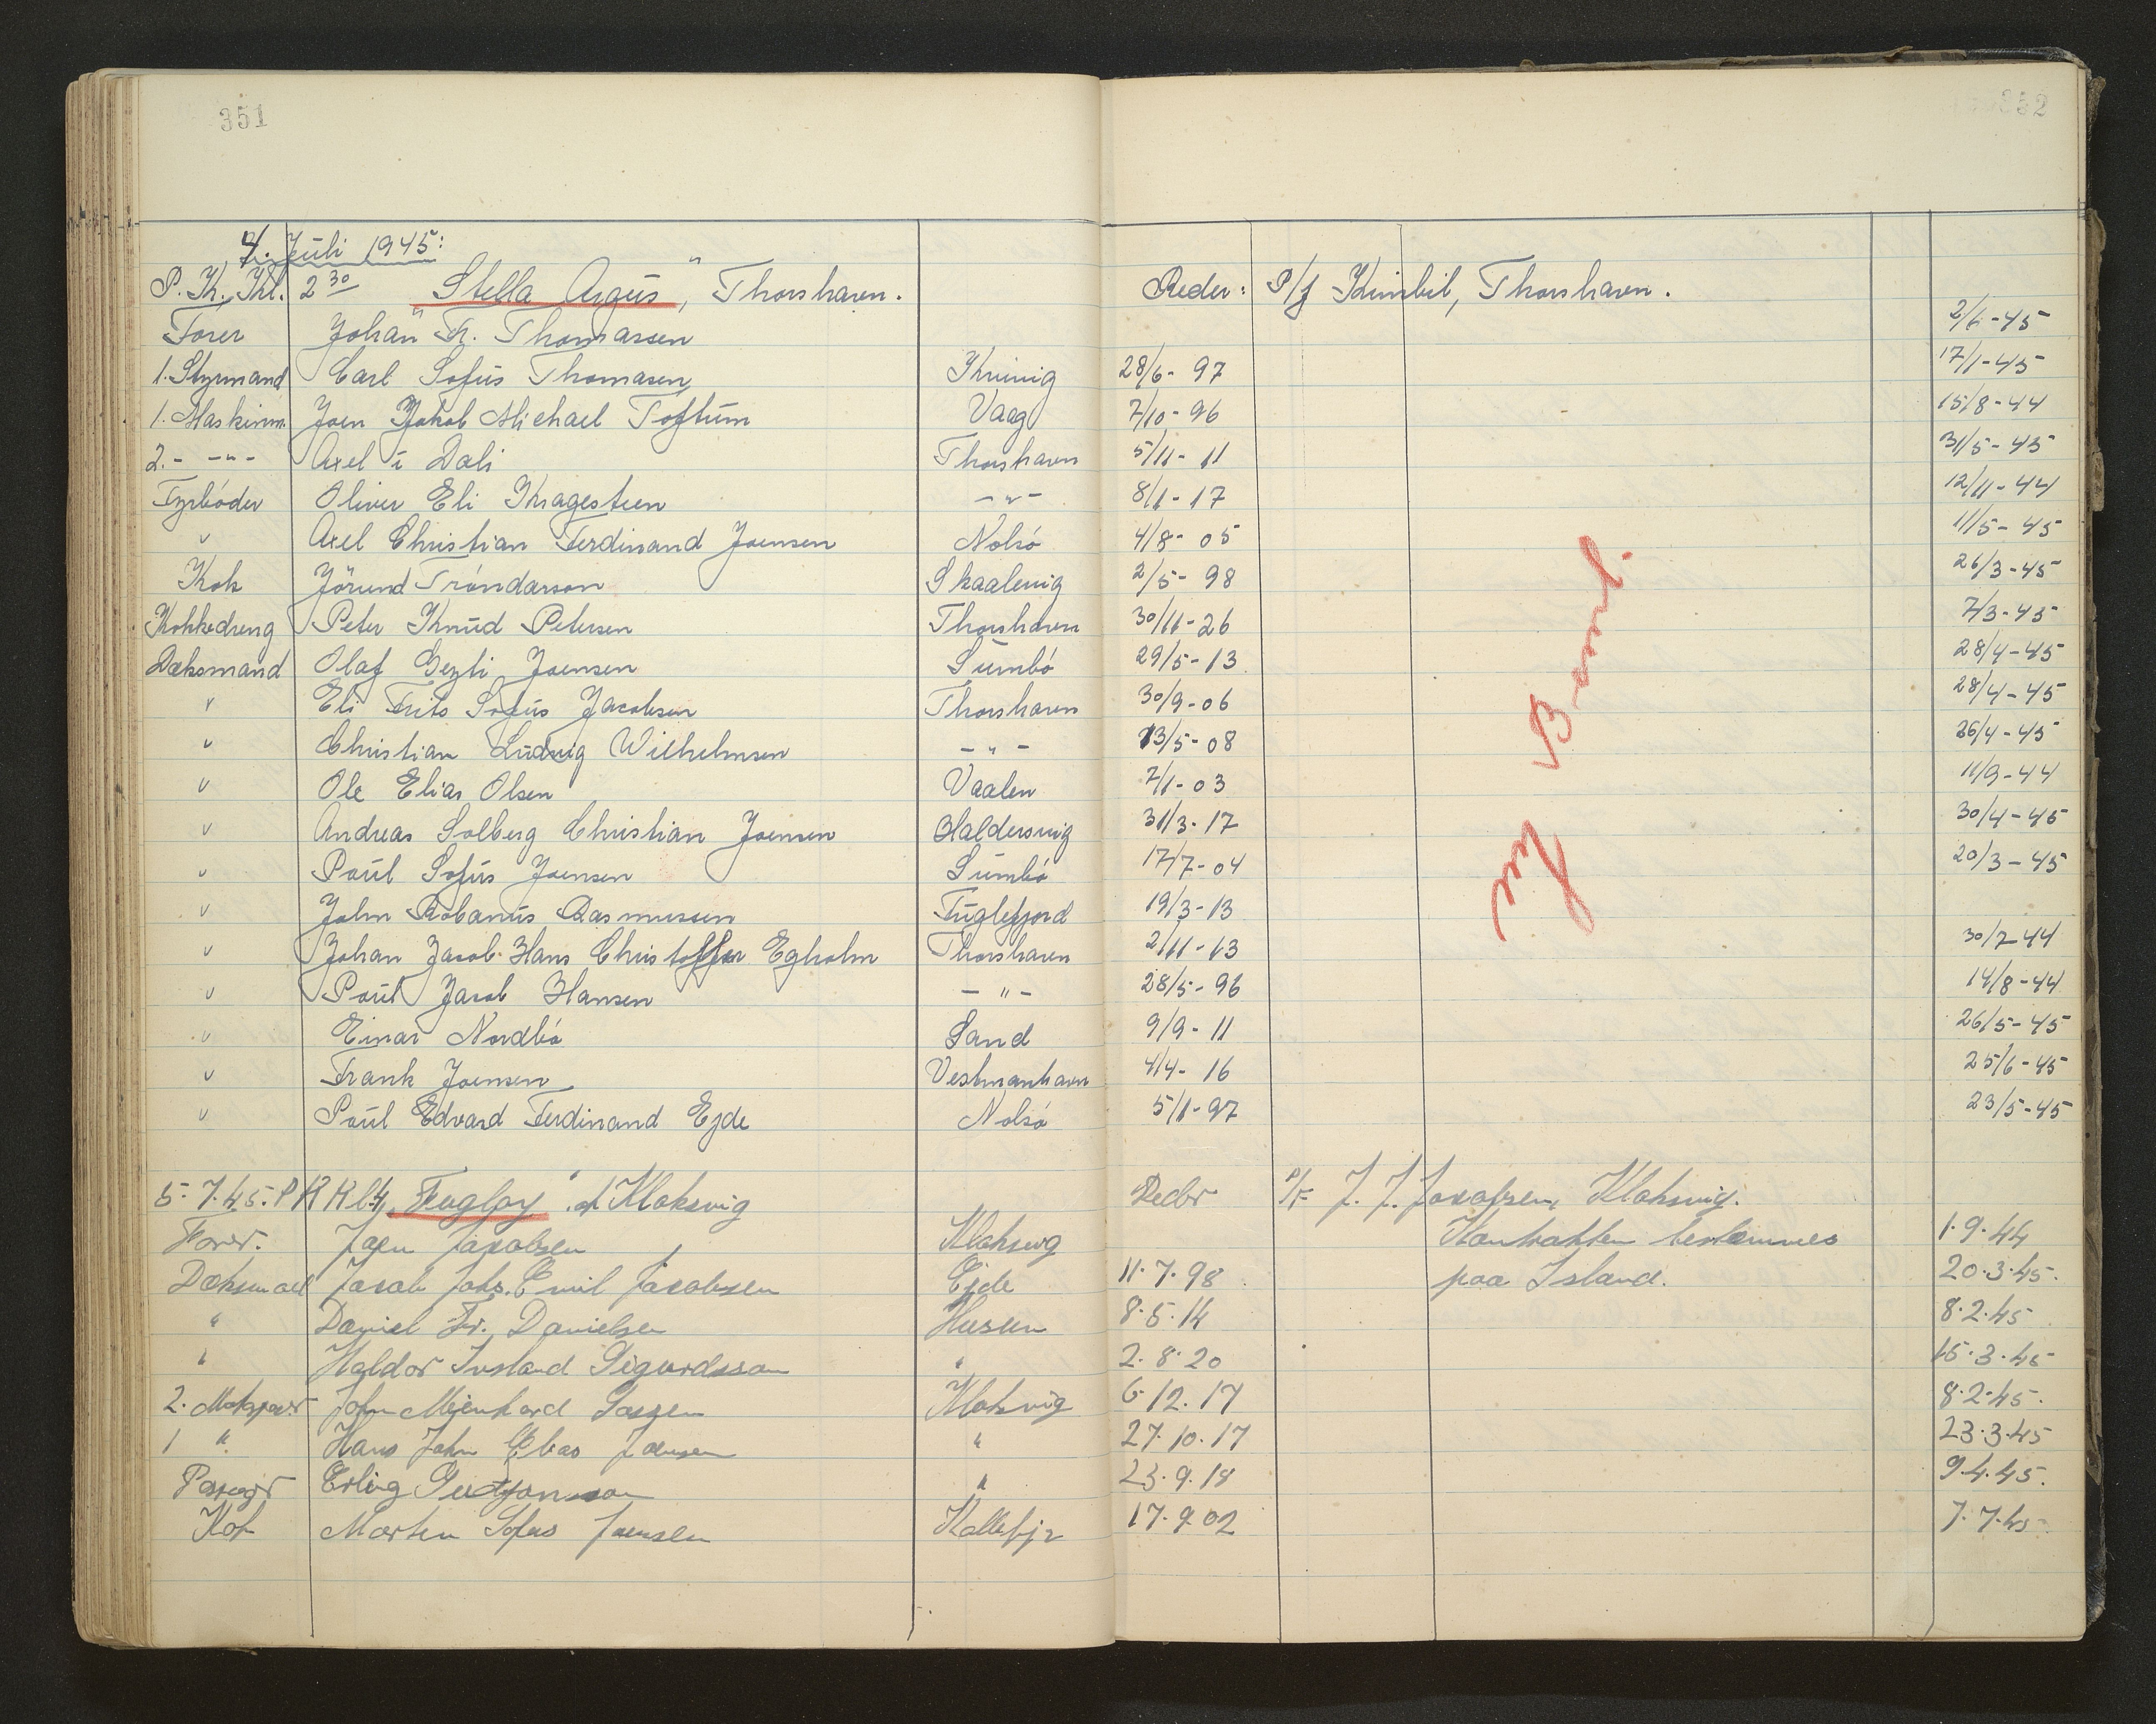 351
352
4. Juli 1945:
P. K. Kl. 2 30 "Stella Argus", Thorshavn. Reder: P/f Kimbil, Thorshavn.
Fører Johan Fr. Thomassen 2/6-45
1. Styrmand Carl Sofus Thomasen Kvivig 28/6-97 17/1-45
1. Maskinm Joen Jakob Michael Toftum Vaag 7/10-96 15/8-44
2. - -"- Axel i Dali Thorshavn 5/11-11 31/5-45
Fyrbøder Oliver Eli Kragesteen -"- 8/1-17 12/11-44
" Axel Christian Ferdinand Joensen Nolsø 4/8-05 11/5-45
Kok Jørund Tróndarson Skaalevig 2/5-98 26/3-45
Kokkedreng Peter Knud Petersen Thorshavn 30/11-26 7/3-45
Dæksmand Olaf Geyti Joensen Sumbø 29/5-13 28/4-45
" Eli Frits Sofus Jacobsen Thorshavn 30/9-06 28/4-45
" Christian Ludvig Wilhelmsen -"- 13/5-08 26/4-45
" Ole Elias Olsen Vaalen 7/1-03 11/9-44
" Andreas Solberg Christian Joensen Haldersvig 31/3-17 30/4-45
" Poul Sofus Joensen Sumbø 17/7-04 20/3-45
" John Rabanus Rasmussen Fuglefjord 19/3-13
" Johan Jacob Hans Christoffer Egholm Thorshavn 2/11-13 30/7-44
" Poul Jacob Hansen -"- 28/5-96 14/8-44
" Einar Nordbø Sand 9/9-11 26/5-45
" Frank Joensen Vestmanhavn 4/4-16 25/6-45
" Poul Edvard Ferdinand Ejde Nolsø 5/1-97 23/5-45
5.7.45. P K Kl 4 "Fugloy" af Klaksvig Reder P/F J. J. Jacobsen, Klaksvig.
Fører. Joen Jacobsen Klaksvig Kontrakten bestemmes 1.9.44
Dæksmand Jacob Johs. Emil Jacobsen Ejde 11.7.98 paa Island. 20.3.45.
" Daniel Fr. Danielsen Husum 8.5.14 8.2.45
" Haldor Sigurdsson " 2.8.20 15.3.45
2. Motorpasser John Meinhard Klaksvig 6.12.17 8.2.45.
1 " Hans John Joensen " 27.10.17 23.3.45
Erling " 23.9.18 9.4.45.
Kok Morten Sofus Joensen 17.9.02 7.7.45